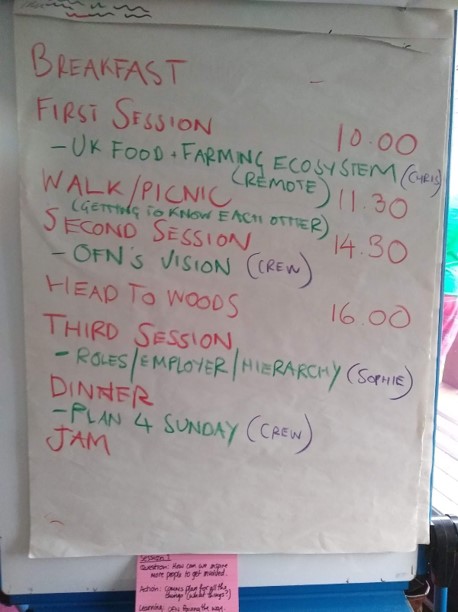 BREAKFAST
FIRST SESSION 10.00
- UK FOOD + FARMING ECOSYSTEM (CHRIS)
(REMOTE)
WALK/PICNIC 11.30
(GETTING TO KNOW EACH OTHER)
SECOND SESSION 14.30
- OFN'S VISION (CREW)
HEAD TO WOODS 16.00
THIRD SESSION
- ROLES/EMPLOYER/HIERARCHY (SOPHIE)
DINNER
- PLAN 4 SUNDAY (CREW)
JAM
Session 1
Question: How can we inspire
more people to get involved.
Action: comms plan for all the
things (what things?)
Learning: